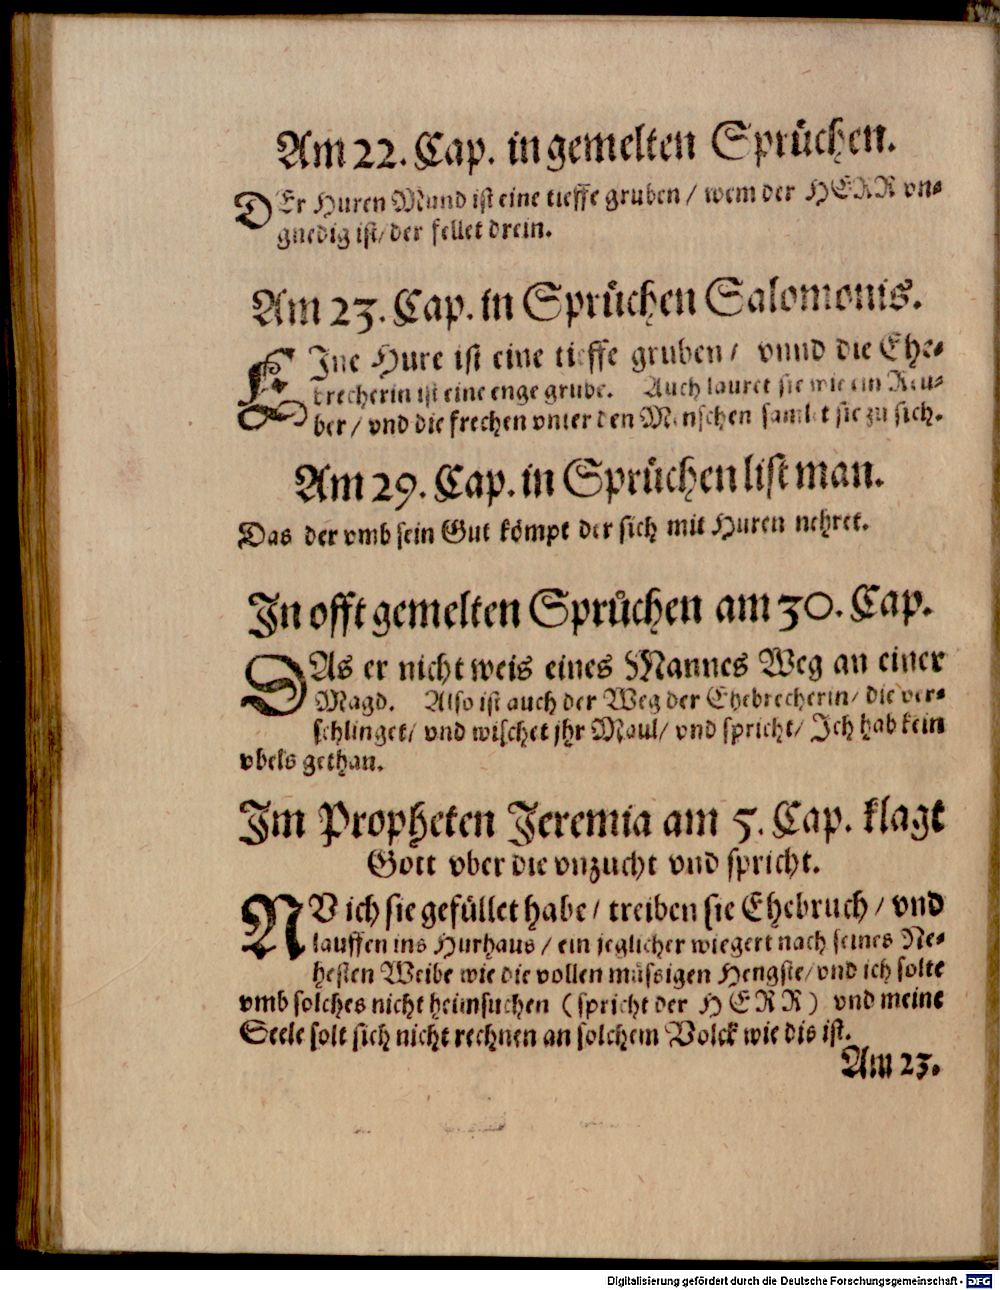 Am 22. Cap. in gemelten Sprüchen.
DEr Huren Mund ist eine tieffe gruben / wem der HERR vn-
gnedig ist / der fellet drein.
Am 23. Cap. in Sprüchen Salomonis.
EIne Hure ist eine tieffe gruben / vnnd die Ehe-
brecherin ist eine enge grube. Auch lauret sie wie ein Reu-
ber / vnd die frechen vnter den Menschen samlet sie zu sich.
Am 29. Cap. in Sprüchen list man.
Das der vmb sein Gut kömpt der sich mit Huren nehret.
In offt gemelten Sprůchen am 30. Cap.
DAs er nicht weis eines Mannes Weg an einer
Magd. Also ist auch der Weg der Ehebrecherin / die ver-
schlinget / vnd wischet jhr Maul / vnd spricht / Ich hab kein
vbels gethan.
Im Propheten Jeremia am 5. Cap. klagt
Gott vber die vnzucht vnd spricht.
NV ich sie gefüllet habe / treiben sie Ehebruch / vnd
lauffen ins Hurhaus / ein jeglicher wiegert nach seines Ne-
hesten Weibe wie die vollen müssigen Hengste / vnd ich solte
vmb solches nicht heimsuchen (spricht der HERR) vnd meine
Seele solt sich nicht rechnen an solchem Volck wie dis ist.
Am 23.
Digitalisierung gefördert durch die Deutsche Forschungsgemeinschaft - DFG